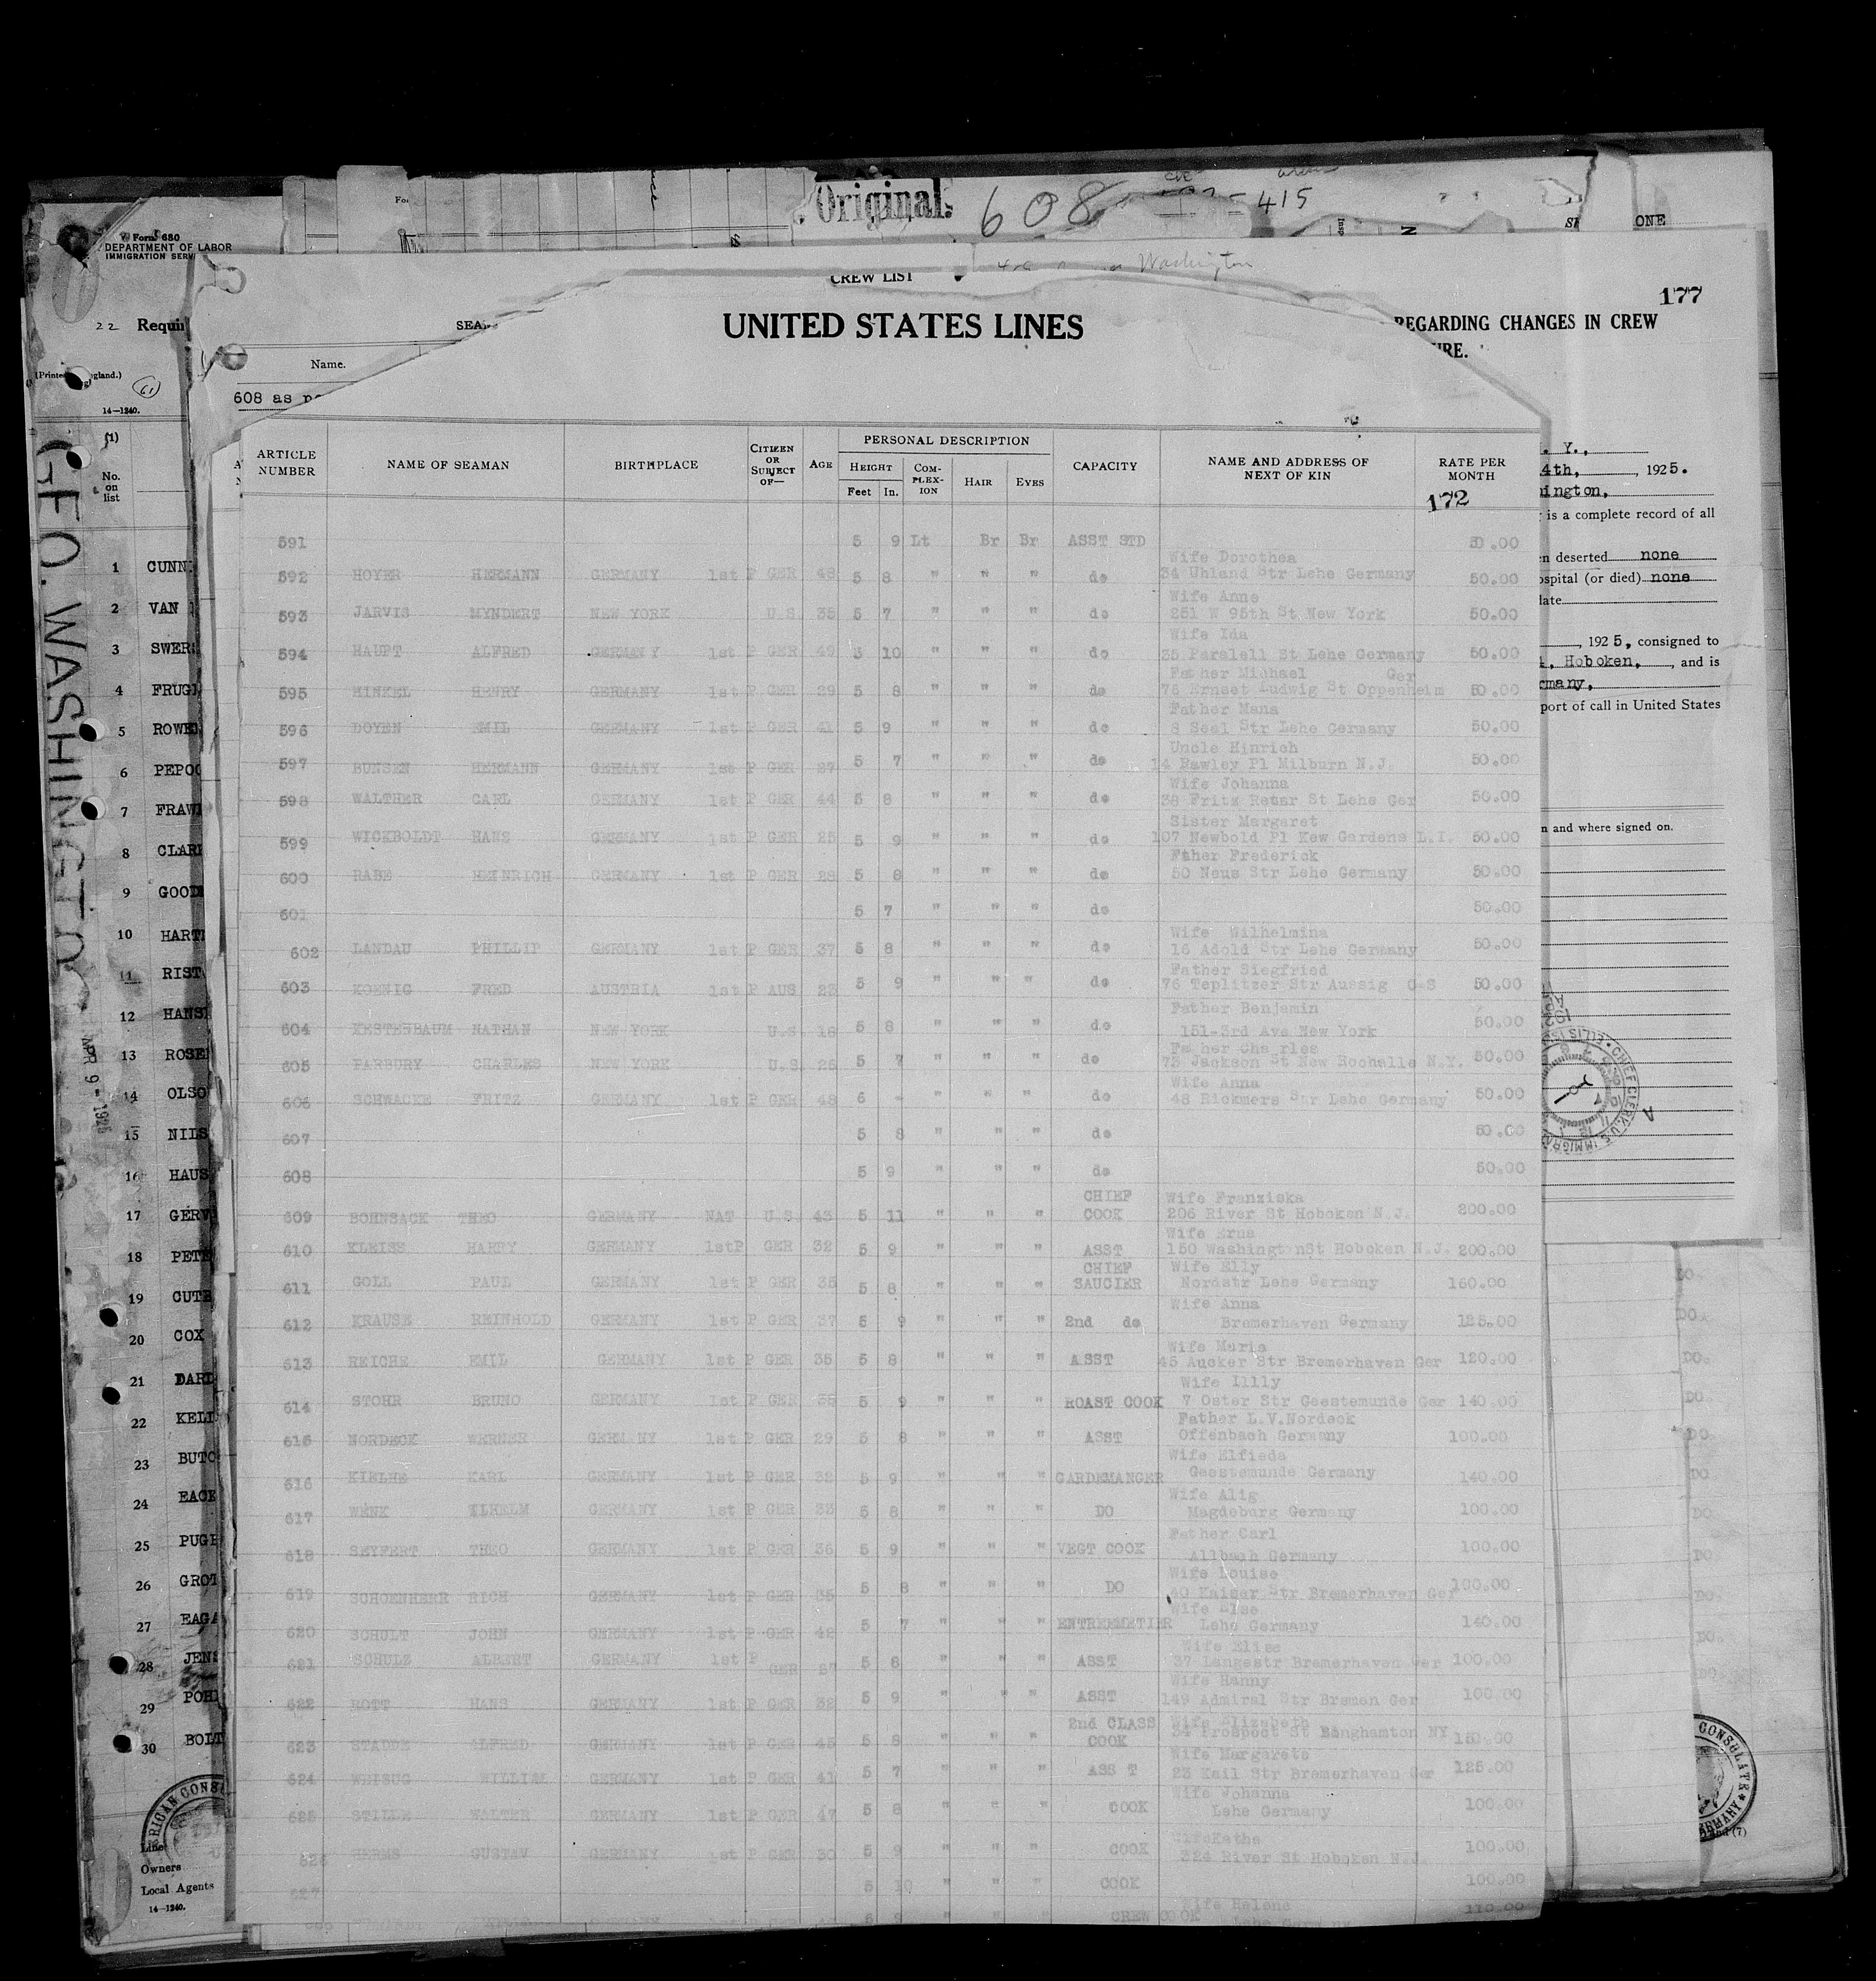 Original.
608
- 415
ONE
Form 680
DEPARTMENT OF LABOR
IMMIGRATION SERV
Washington
CREW LIST
177
22 Requi
SEA
UNITED STATES LINES
REGARDING CHANGES IN CREW
URE.
Name.
61
14—1240.
608 as pe
GEO. WASHINGTON
APR 9 - 1925
(1)
No. on list
1 CUNN
2 VAN
3 SWER
4 FRUG
5 ROWE
6 PEPO
7 FRAW
8 CLAR
9 GOOD
10 HART
11 RIST
12 HANS
13 ROSE
14 OLSO
15 NILS
16 HAUS
17 GERV
18 PETE
19 CUTE
20 COX
21 DARL
22 KELL
23 BUTC
24 EAGE
25 PUGH
26 GROT
27 EAGA
28 JENS
29 POHL
30 BOLT
Line
Owners
Local Agents
14—1240.
ARTICLE NUMBER NAME OF SEAMAN BIRTHPLACE CITIZEN OR SUBJECT OF— AGE PERSONAL DESCRIPTION CAPACITY NAME AND ADDRESS OF NEXT OF KIN RATE PER MONTH
HEIGHT COM-PLEX-ION HAIR EYES
Feet In.
172
591 5 9 Lt Br Br ASST STD 50.00
Wife Dorothea
592 HOYER HERMANN GERMANY 1st P GER 48 5 8 " " " do 34 Uhland Str Lehe Germany 50.00
Wife Anne
593 JARVIS MYNDERT NEW YORK U.S. 35 5 7 " " " do 251 W 95th St New York 50.00
Wife Ida
594 HAUPT ALFRED GERMANY 1st P GER 49 5 10 " " " do 35 Paralell St Lehe Germany 50.00
Father Michael Ger
595 HINKEL HENRY GERMANY 1st P GER 29 5 8 " " " do 76 Ernset Ludwig St Oppenheim 50.00
Father Mana
596 DOYEN EMIL GERMANY 1st P GER 41 5 9 " " " do 8 Seal Str Lehe Germany 50.00
Uncle Hinrich
597 BUNSEN HERMANN GERMANY 1st P GER 27 5 7 " " " do 14 Rawley Pl Milburn N.J. 50.00
Wife Johanna
598 WALTHER CARL GERMANY 1st P GER 44 5 8 " " " do 38 Fritz Reuar St Lehe Ger 50.00
Sister Margaret
599 WICKBOLDT HANS GERMANY 1st P GER 25 5 9 " " " do 107 Newbold Pl Kew Gardens L.I. 50.00
Father Frederick
600 RABE HEINRICH GERMANY 1st P GER 28 5 8 " " " do 50 Neue Str Lehe Germany 50.00
601 5 7 " " " do 50.00
Wife Wilhelmina
602 LANDAU PHILLIP GERMANY 1st P GER 37 5 8 " " " do 16 Adold Str Lehe Germany 50.00
Father Siegfried
603 KOENIG FRED AUSTRIA 1st P AUS 23 5 9 " " " do 76 Teplitzer Str Aussig C-S 50.00
Father Benjamin
604 KESTENBAUM NATHAN NEW YORK U.S. 18 5 8 " " " do 151-3rd Ave New York 50.00
Father Charles
605 PARBURY CHARLES NEW YORK U.S. 26 5 7 " " " do 75 Jackson St New Rochalle N.Y. 50.00
Wife Anna
606 SCHWACKE FRITZ GERMANY 1st P GER 48 6 - " " " do 48 Rickmers Str Lehe Germany 50.00
607 5 8 " " " do 50.00
608 5 9 " " " do 50.00
CHIEF Wife Franziska
609 BOHNSACK THEO GERMANY NAT U.S. 43 5 11 " " " COOK 206 River St Hoboken N.J. 200.00
Wife Erna
610 KLEISS HARRY GERMANY 1stP GER 32 5 9 " " " ASST 150 WashingtonSt Hoboken N.J. 200.00
CHIEF Wife Elly
611 GOLL PAUL GERMANY 1st P GER 35 5 8 " " " SAUCIER Nordstr Lehe Germany 160.00
Wife Anna
612 KRAUSE REINHOLD GERMANY 1st P GER 37 5 9 " " " 2nd do Bremerhaven Germany 125.00
Wife Maria
613 REICHE EMIL GERMANY 1st P GER 35 5 8 " " " ASST 45 Aucker Str Bremerhaven Ger 120.00
Wife Illly
614 STOHR BRUNO GERMANY 1st P GER 38 5 9 " " " ROAST COOK 7 Oster Str Geestemunde Ger 140.00
Father L.V.Nordeck
615 NORDECK WERNER GERM NY 1st P GER 29 5 8 " " " ASST Offenbach Germany 100.00
Wife Elfieda
616 KIELHE KARL GERMANY 1st P GER 32 5 9 " " " GARDEMANGER Geestemunde Germany 140.00
Wife Alig
617 WENK WLHELM GERMANY 1st P GER 33 5 8 " " " DO Magdeburg Germany 100.00
Father Carl
618 SEYFERT THEO GERMANY 1st P GER 36 5 9 " " " VEGT COOK Allbach Germany 100.00
Wife Louise
619 SCHOENHERR RICH GERMANY 1st P GER 35 5 8 " " " DO 40 Kaiser Str Bremerhaven Ger 100.00
Wife Else
620 SCHULT JOHN GERMANY 1st P GER 42 5 7 " " " ENTREEMETIER Lehe Germany 140.00
Wife Elise
621 SCHULZ ALBERT GERMANY 1st P GER 37 5 8 " " " ASST 37 Langestr Bremerhaven Ger 100.00
Wife Hanny
622 ROTT HANS GERMANY 1st P GER 32 5 9 " " " ASST 149 Admiral Str Bremen Ger 100.00
2nd CLASS Wife Elizabeth
623 STADDE ALFRED GERMANY 1st P GER 45 5 8 " " " COOK 34 Prospect St Binghamton NY 150.00
Wife Margarete
624 WEISUG WILLIEM GERMANY 1st P GER 41 5 7 " " " ASS T 23 Kail Str Bremerhaven Ger 125.00
Wife Johanna
625 STILLE WALTER GERMANY 1st P GER 47 5 8 " " " COOK Lehe Germany 100.00
WifeKathe
626 HERMS GUSTAV GERMANY 1st P GER 30 5 9 " " " COOK 324 River St Hoboken N.J. 100.00
627 5 10 " " " COOK 100.00
Wife Helene
5 9 CREW COOK 110.00
. Y.,
4th, , 1925.
ington,
is a complete record of all
n deserted none
ospital (or died) none
late
, 1925, consigned to
, Hoboken, , and is
rmany,
port of call in United States
n and where signed on.
DO.
DO.
DO.
DO
DO.
DO
DO
DO
DO
DO.
DO.